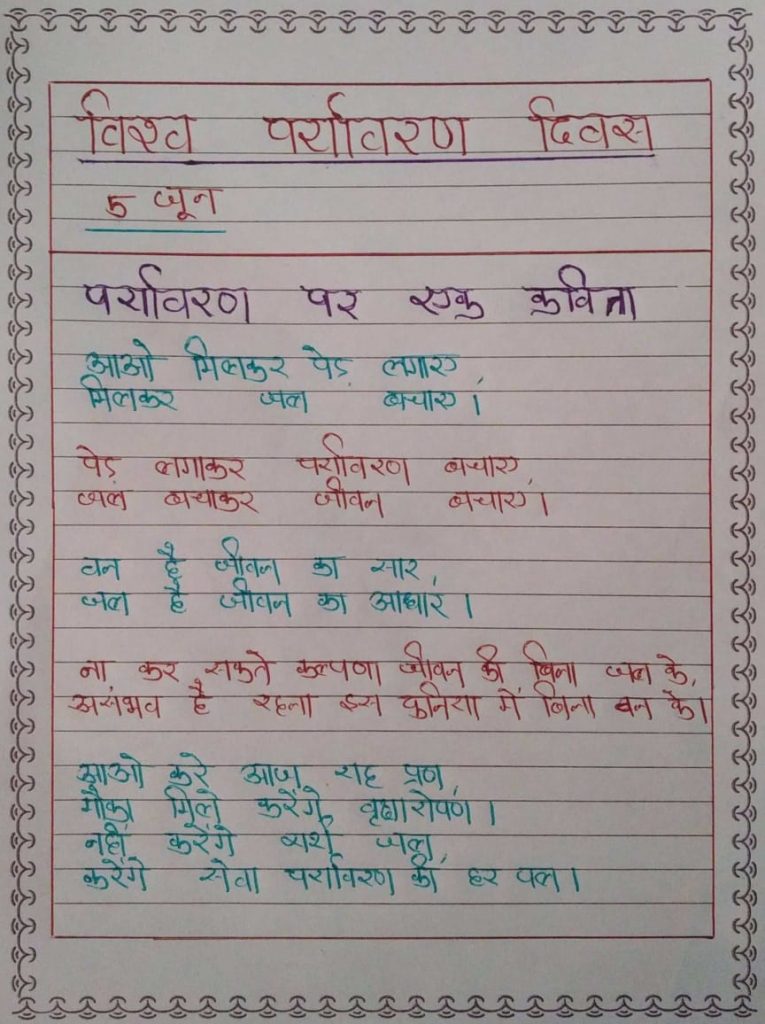 विश्व पर्यावरण दिवस
5 जून
पर्यावरण पर एक कविता
आओ मिलकर पेड़ लगाए,
मिलकर जल बचाए।
पेड़ लगाकर पर्यावरण बचाए,
जल बचाकर जीवन बचाए।
वन है जीवन का सार,
जल है जीवन का आधार।
ना कर सकते कल्पणा जीवन की बिना जल के,
असंभव है रहना इस दुनिया में बिना वन के।
आओ करे आज यह प्रण,
मौका मिले करेंगे वृक्षारोपण।
नहीं करेंगे व्यर्थ जल,
करेंगे सेवा पर्यावरण की हर पल।